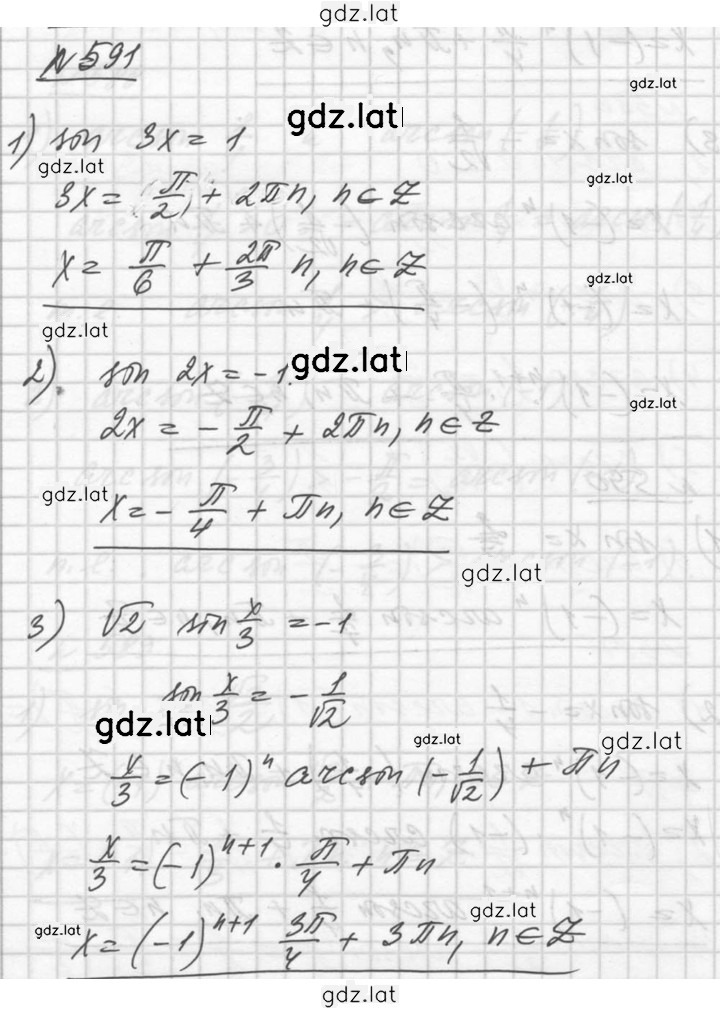 gdz.lat
№591
gdz.lat
1) sin 3x = 1
gdz.lat
gdz.lat
3x = π/2 + 2πn, n ∈ Z
gdz.lat
x = π/6 + 2π/3 n, n ∈ Z
gdz.lat
gdz.lat
2). sin 2x = -1.
gdz.lat
2x = - π/2 + 2πn, n ∈ Z
gdz.lat
gdz.lat
x = - π/4 + πn, n ∈ Z
gdz.lat
3) √2 sin x/3 = -1
sin x/3 = - 1/√2
gdz.lat
gdz.lat
gdz.lat
x/3 = (-1)^n arcsin (- 1/√2) + πn
x/3 = (-1)^{n+1} · π/4 + πn
gdz.lat
gdz.lat
x = (-1)^{n+1} 3π/4 + 3πn, n ∈ Z
gdz.lat